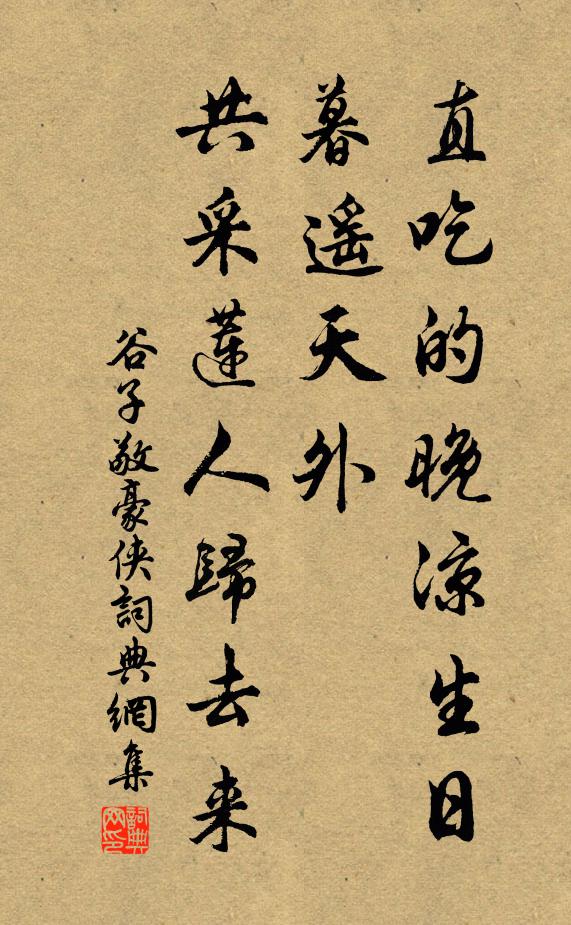 直吃的晚凉生日
暮遥天外
共采莲人歸去来
谷子敬豪侠詞典網集
詞典網印